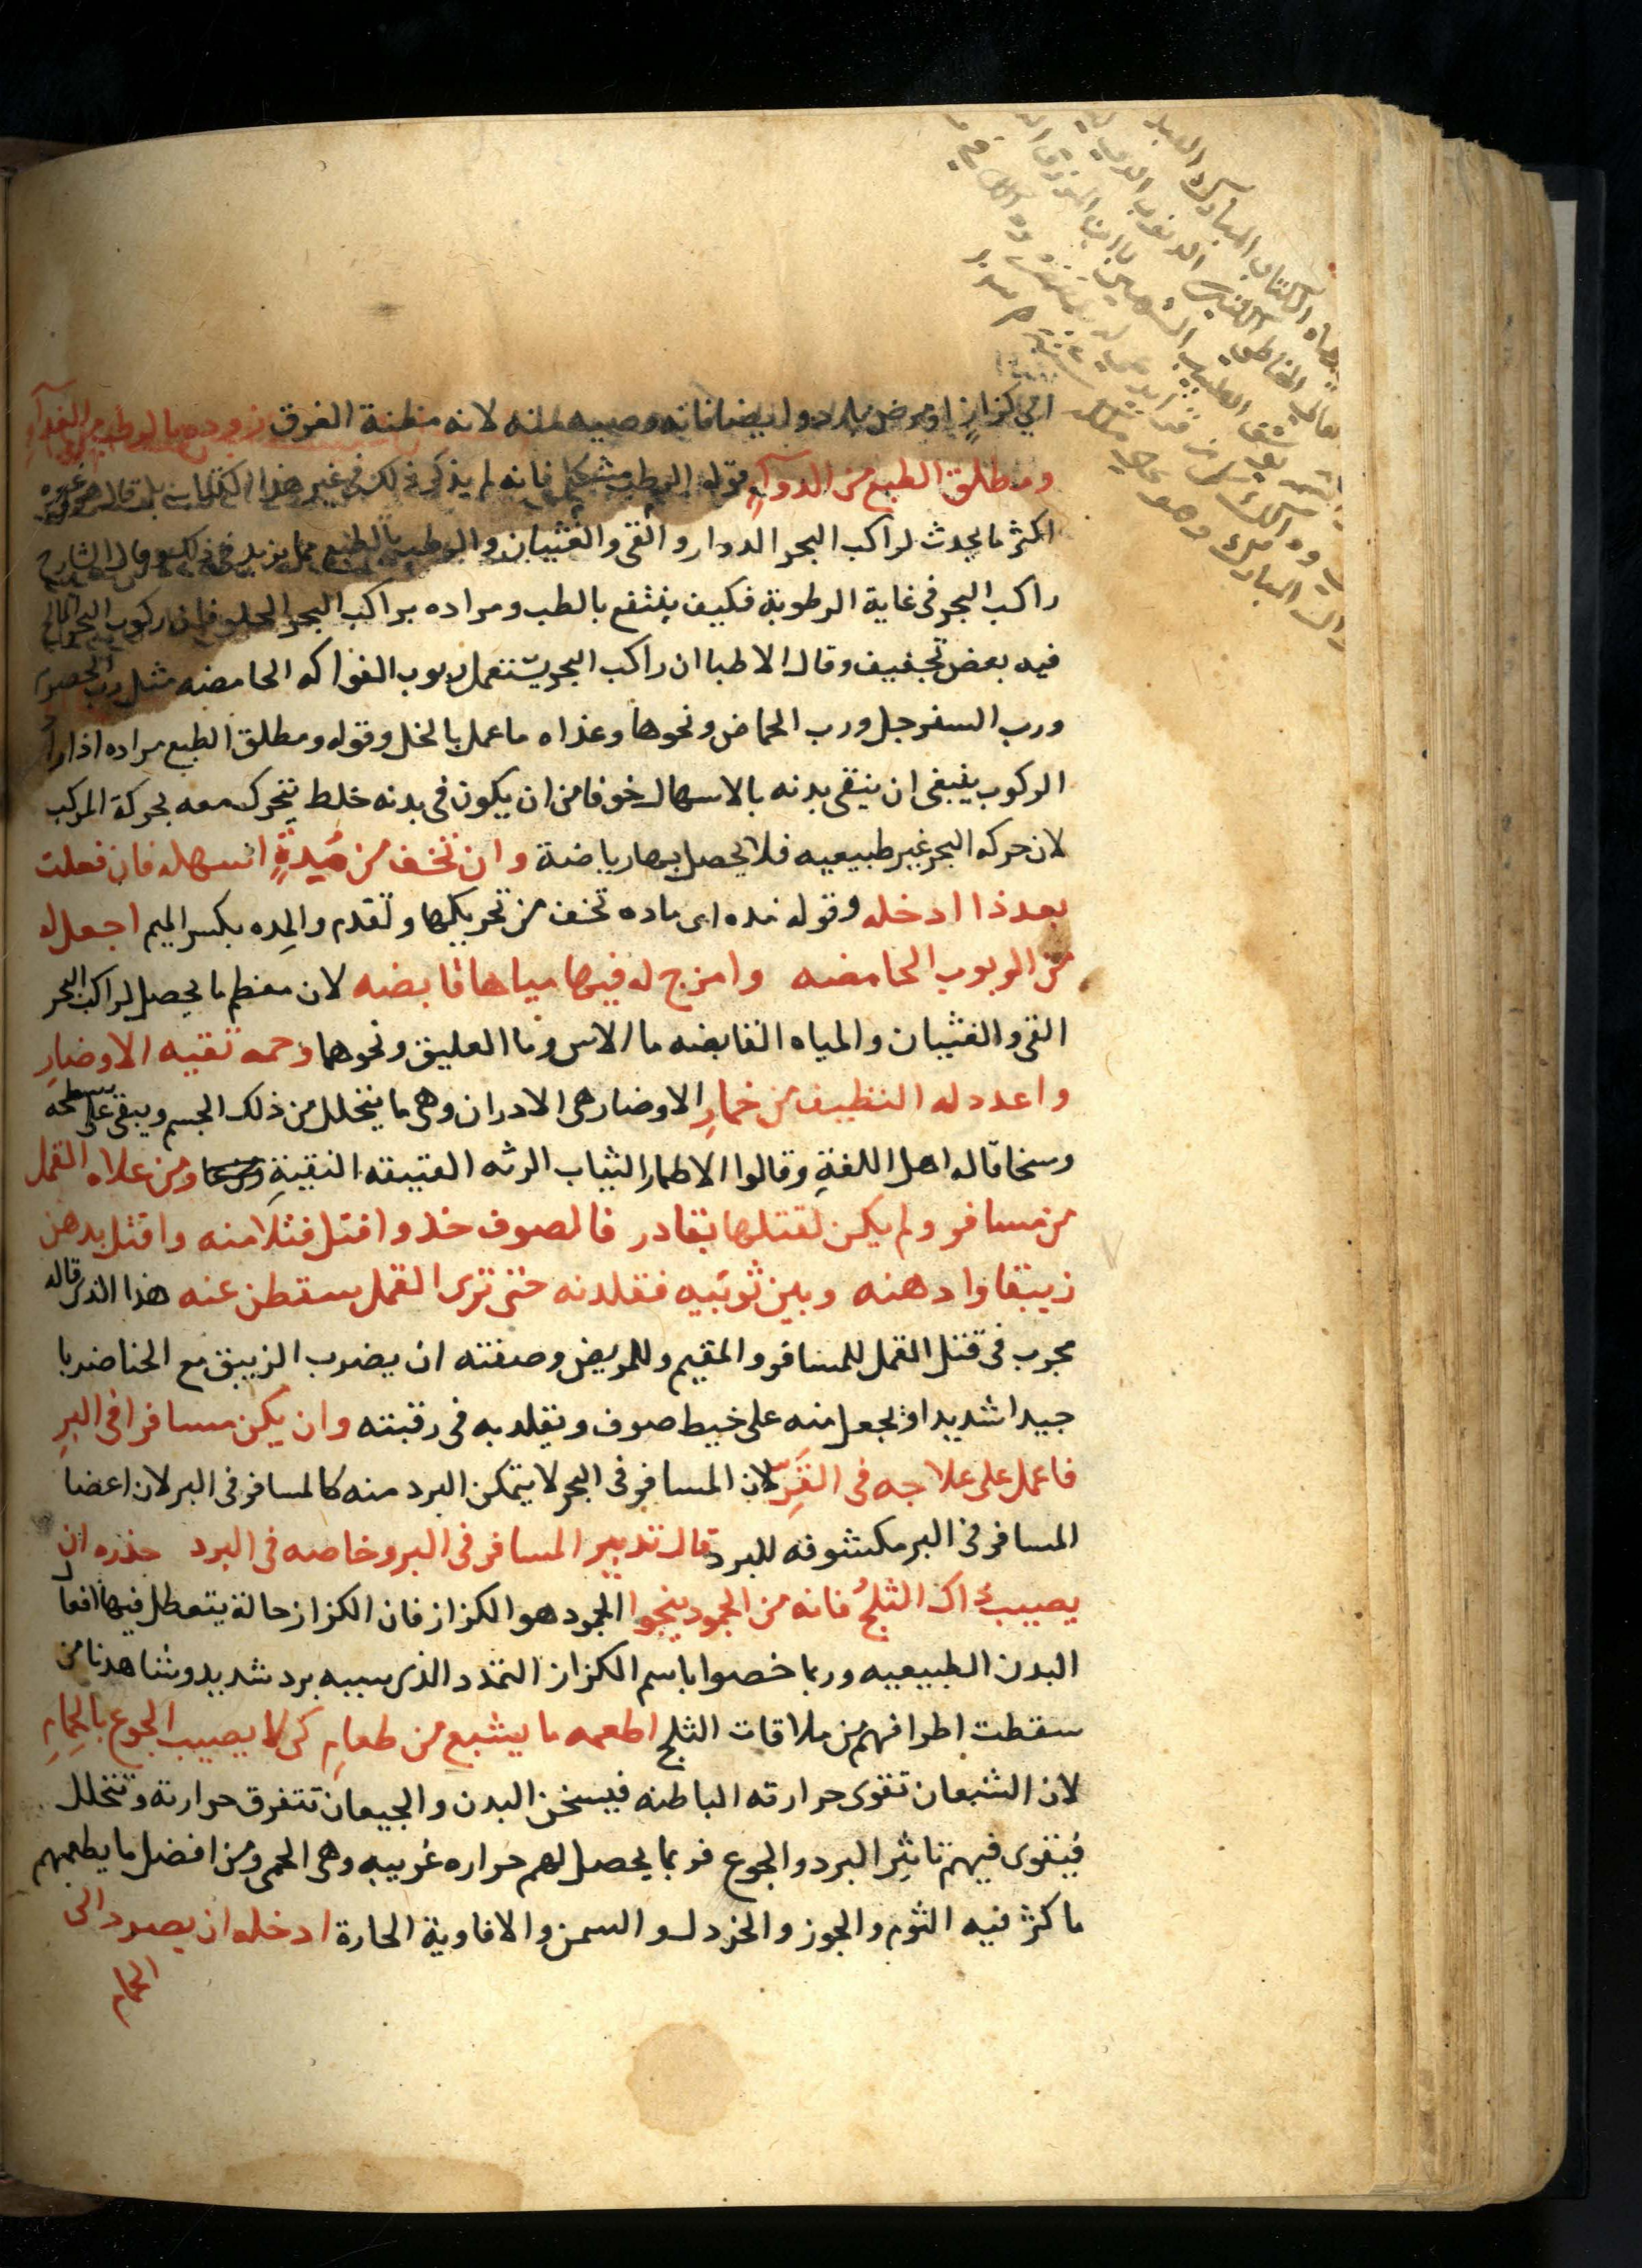 الي كزاز او مرض بارد وايضا فانه وصيه لانه مظنة الغرق زوده بالرطب من الغذآءِ
ومطلق الطبع من الدوآءِ قوله الرطب مشكل فانه لم يذكر ذلك في غير هذا الكتاب بل قال هو وغيره
اكثر ما يحدث لراكب البحر الدوار والقى والغثيان والرطب بالطبع مما يزيد في ذلك وقال الشارح
راكب البحر فى غاية الرطوبة فكيف ينتفع بالطب ومراده براكب البحر الحلو فان ركوب البحر المالح
فيه بعض تجفيف وقال الاطبا ان راكب البحر يستعمل ربوب الفواكه الحامضه مثل رب الحصرم
ورب السفرجل ورب الحماض ونحوها وغذاه ما عمل بالخل وقوله ومطلق الطبع مراده اذا اراد
الركوب ينبغى ان ينقى بدنه بالاسهال خوفا من ان يكون فى بدنه خلط يتحرك معه بحركة المركب
لان حركه البحر غير طبيعيه فلا يحصل بها رياضة وان تخف من مِدةٍ اسهله فان فعلت
بعد ذا ادخله وقوله مده اى ماده تخف من تحريكها وتقدم والمِده بكسر الميم اجعل له
من الربوب الحامضه وامزج له فيها مياها قابضه لان معظم ما يحصل لراكب البحر
القى والغثيان والمياه القابضه ما الاس وما العليق ونحوهما وحمه تقيه الاوضارِ
واعدد له النظيف من خمارِ الاوضار هى الادران وهى ما يتحلل من ذلك الجسم ويبقى على سطحه
وسخا قاله اهل اللغةِ وقالوا الاطمار الثياب الرثه العتيقه النقيةِ ومن علاه القمل
من مسافر ولم يكن لقتلها بقادر فالصوف خذ وافتل فتلا منه واقتل بدهن
زيبقا وادهنه وبين ثوبيه فقلدنه حتى ترى القمل سقطن عنه هذا الذى قاله
مجرب فى قتل القمل للمسافر والمقيم وللمريض وصفته ان يضرب الزيبق مع الحنا ضربا
جيدا شديدا وبجعل منه على خيط صوف ويقلد به فى رقبته وان يكن مسافرا فى البرِ
فاعمل على علاجه فى القَرِّ لان المسافر فى البحر لا يتمكن البرد منه كالمسافر فى البر لان اعضا
المسافر فى البر مكشوفه للبرد قال تدبير المسافر فى البر وخاصه فى البرد حذره ان
يصيب ذاك الثلجُ فانه من الجمود ينجوا الجمود هو الكزاز فان الكزاز حالة يتعطل فيها افعال
البدن الطبيعيه وربما خصوا باسم الكزاز التمدد الذى سببه برد شديد وشاهدنا من
سقطت اطرافهم من ملاقات الثلج اطعمه ما يشبع من طعامِ كى لا يصيب الجوع بالحِمامِ
لان الشبعان تقوى حرارته الباطنه فيسخن البدن والجيعان تتفرق حرارته وتتحلل
فيقوى فيهم تاثير البرد والجوع فربما يحصل لهم حراره غريبه وهى الحمى ومن افضل ما يطعمهم
ما كثر فيه الثوم والجوز والخردل والسمن والافاوية الحارة ادخله ان يصرد الى
الحمام